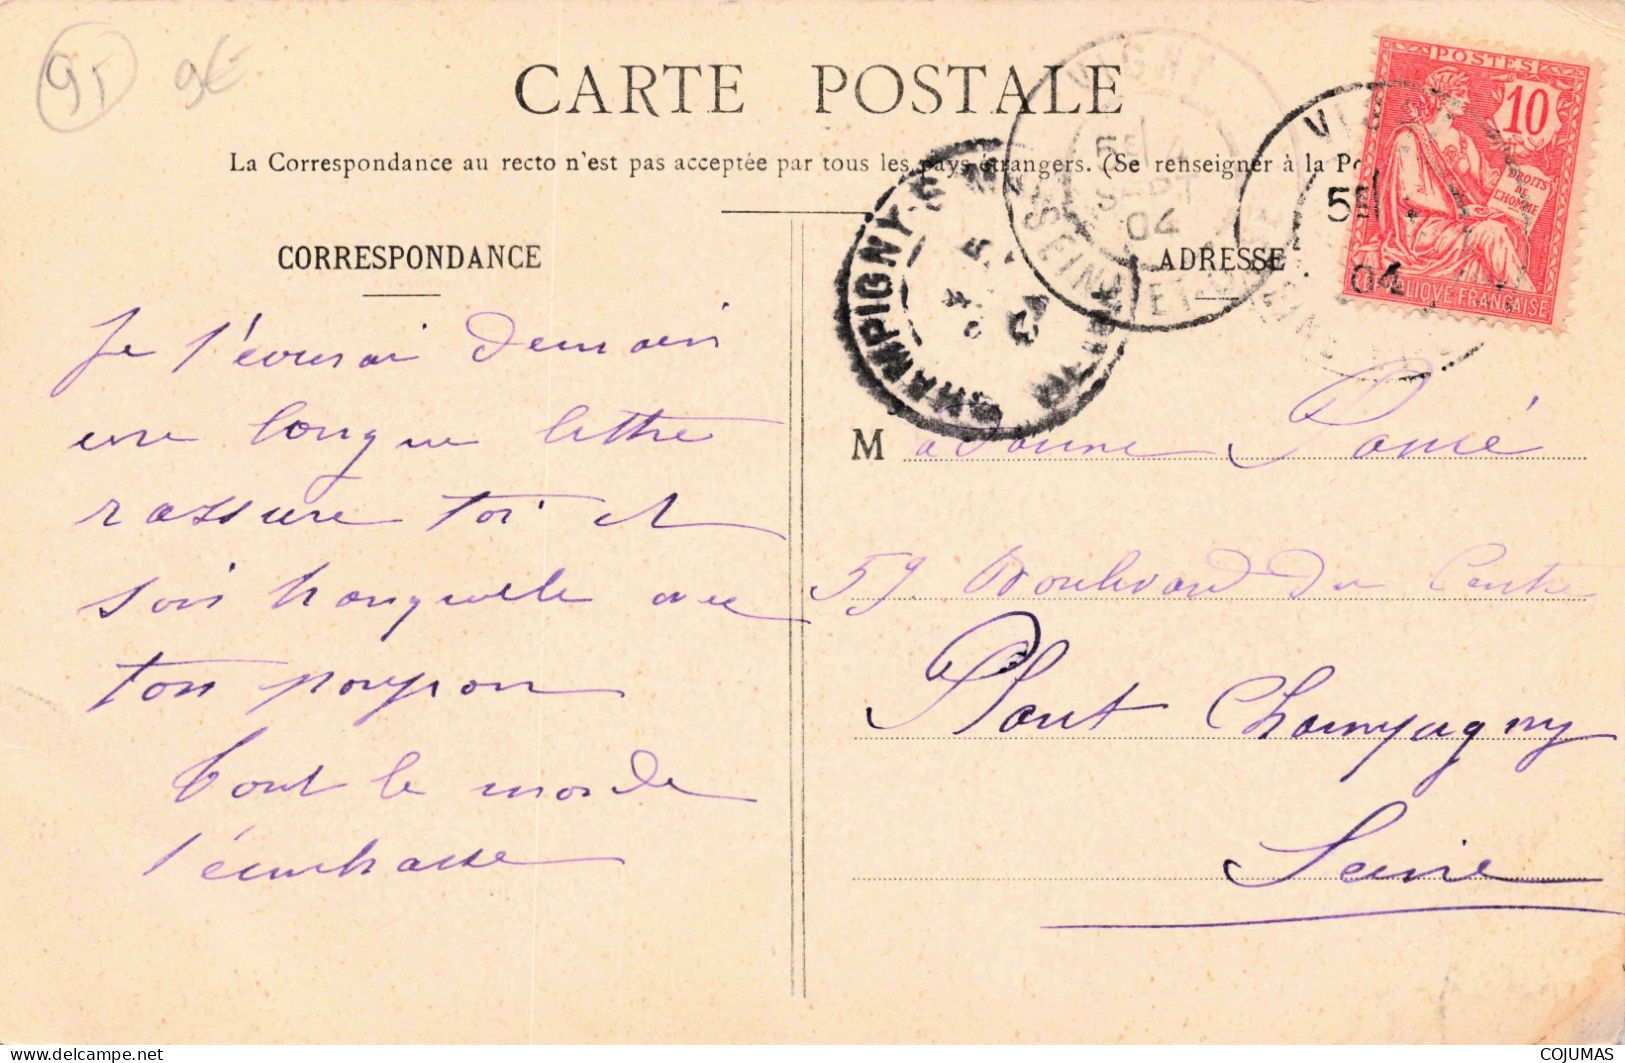 95 9€
CARTE POSTALE
La Correspondance au recto n'est pas acceptée par tous les pays étrangers. (Se renseigner à la Po
CORRESPONDANCE
ADRESSE
Je t'écrirai demain
une longue lettre
rassure toi et
sois tranquille avec
ton poupon
tout le monde
t'embrasse
Madame
59 Boulevard du Centre
Plant Champigny
Seine
POSTES
10
DROITS DE L'HOMME
REPUBLIQUE FRANÇAISE
VIGNY
5E 4
SEPT
04
SEINE-ET-OISE
VIG
5E
04
CHAMPIGNY-S-M
04
delcampe.net
COJUMAS